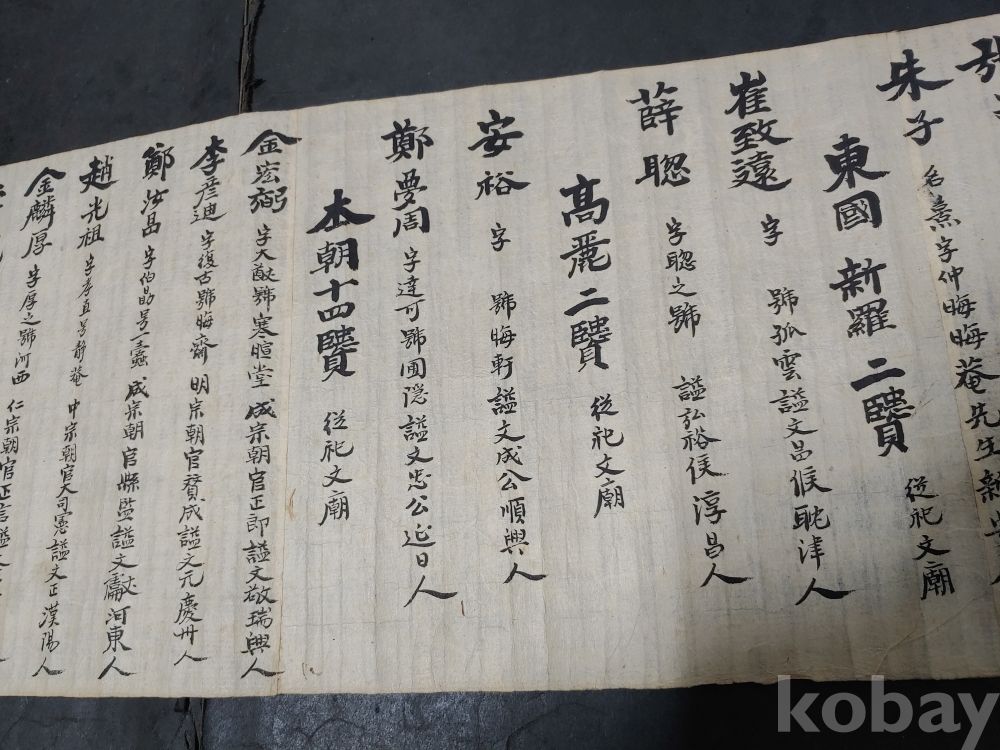 朱子 名熹字仲晦晦菴先生新安人
東國 新羅 二賢 從祀文廟
崔致遠 字 號孤雲謚文昌候耽津人
薛聡 字聡之號 謚弘裕侯淳昌人
高麗二賢 從祀文廟
安裕 字 號晦軒謚文成公順興人
鄭夢周 字達可號圃隠謚文忠公迎日人
本朝十四賢 從祀文廟
金宏弼 字大猷號寒暄堂 成宗朝官正郎謚文敬瑞興人
李彦迪 字復古號晦齋 明宗朝官賛成謚文元慶州人
鄭汝昌 字伯勗号一蠹 成宗朝官縣監謚文獻河東人
趙光祖 字孝直号静菴 中宗朝官大司憲謚文正漢陽人
金麟厚 字厚之號河西 仁宗朝官正言謚文
kobay